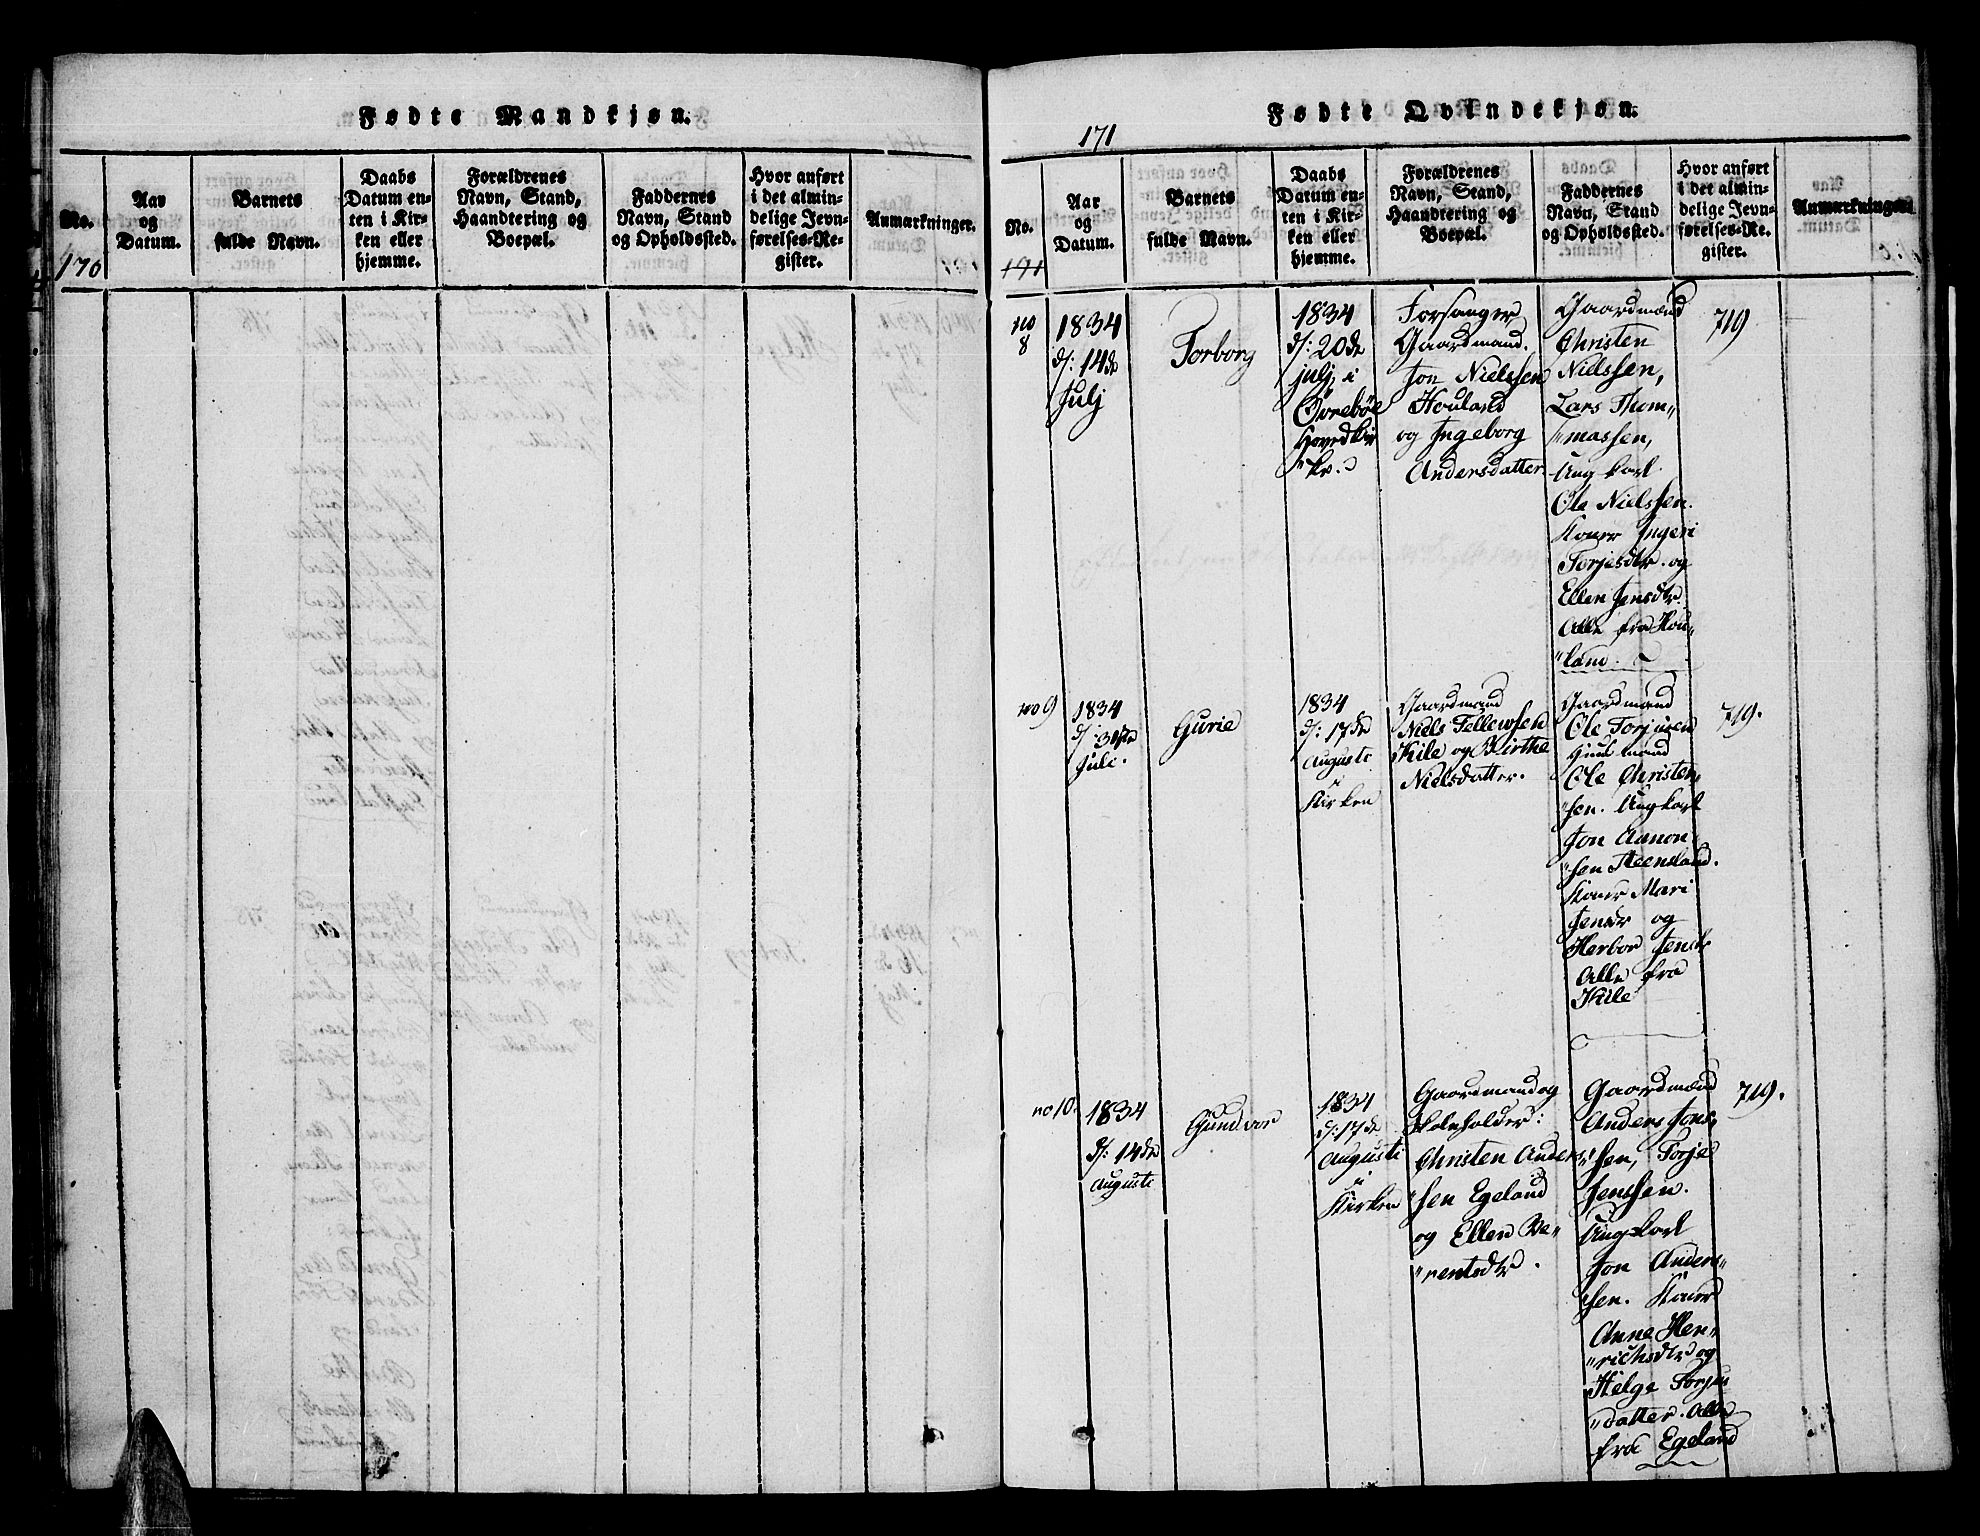 Fødte Mandkjøn.
No.
170
Aar
og
Datum.
Barnets
fulde Navn.
Daabs
Datum en-
ten i Kir-
ken eller
hjemme.
Forældrenes
Navn, Stand,
Haandtering og
Boepæl.
Faddernes
Navn, Stand
og Opholdssted.
Hvor anført
i det almin-
delige Jevn-
førelses-Re-
gister.
Anmærkninger.
Fødte Qvindekjøn.
171
No.
171
Aar
og
Datum.
Barnets
fulde Navn.
Daabs
Datum en-
ten i Kir-
ken eller
hjemme.
Forældrenes
Navn, Stand,
Haandtering og
Boepæl.
Faddernes
Navn, Stand
og Opholdssted.
Hvor anført
i det almin-
delige Jevn-
førelses-Re-
gister.
Anmærkninger.
no
8
1834
d: 14de
Julj
Torborg
1834
d: 20de
julj i
Øvrebøe
Hovedkir
"ke.
Forsanger
Gaardmand.
Jon Nielssen
Houland
og Ingeborg
Andersdatter.
Gaardmænd
Christen
Nielssen,
Lars Thom"
"massen,
Ung karl
Ole Nielssen.
Koner Ingeri
Torjesdtr. og
Ellen Jensdtr.
Alle fra Hou"
"land.
719
no 9
1834
d: 31te
Juli.
Gurie
1834
d: 17de
Augusti
i
Kirken
Gaardmand
Niels Tellewsen
Kile og Birthe
Nielsdatter.
Gaardmænd
Ole Torjusen
Ole Christen"
"sen. Ungkarl
Jon Aanon"
"sen Steensland.
Koner Mari
og
Herbor Jensdtr
Alle fra
Kile
719.
no 10.
1834
d: 14de
Augusti
Gundvor
1834
d: 17de
Augusti
i
Kirken
Gaardmand og
Skoleholder:
Christen Anders"
"sen Egeland
og Ellen Be"
"rentsdtr.
Gaardmænd
Anders Jons"
"sen, Torje
Jenssen.
Ungkarl
Jon Anders"
sen. Koner
Anne Hen"
"richsdtr og
Helge Torjus
"datter. Alle
fra Egeland
719.